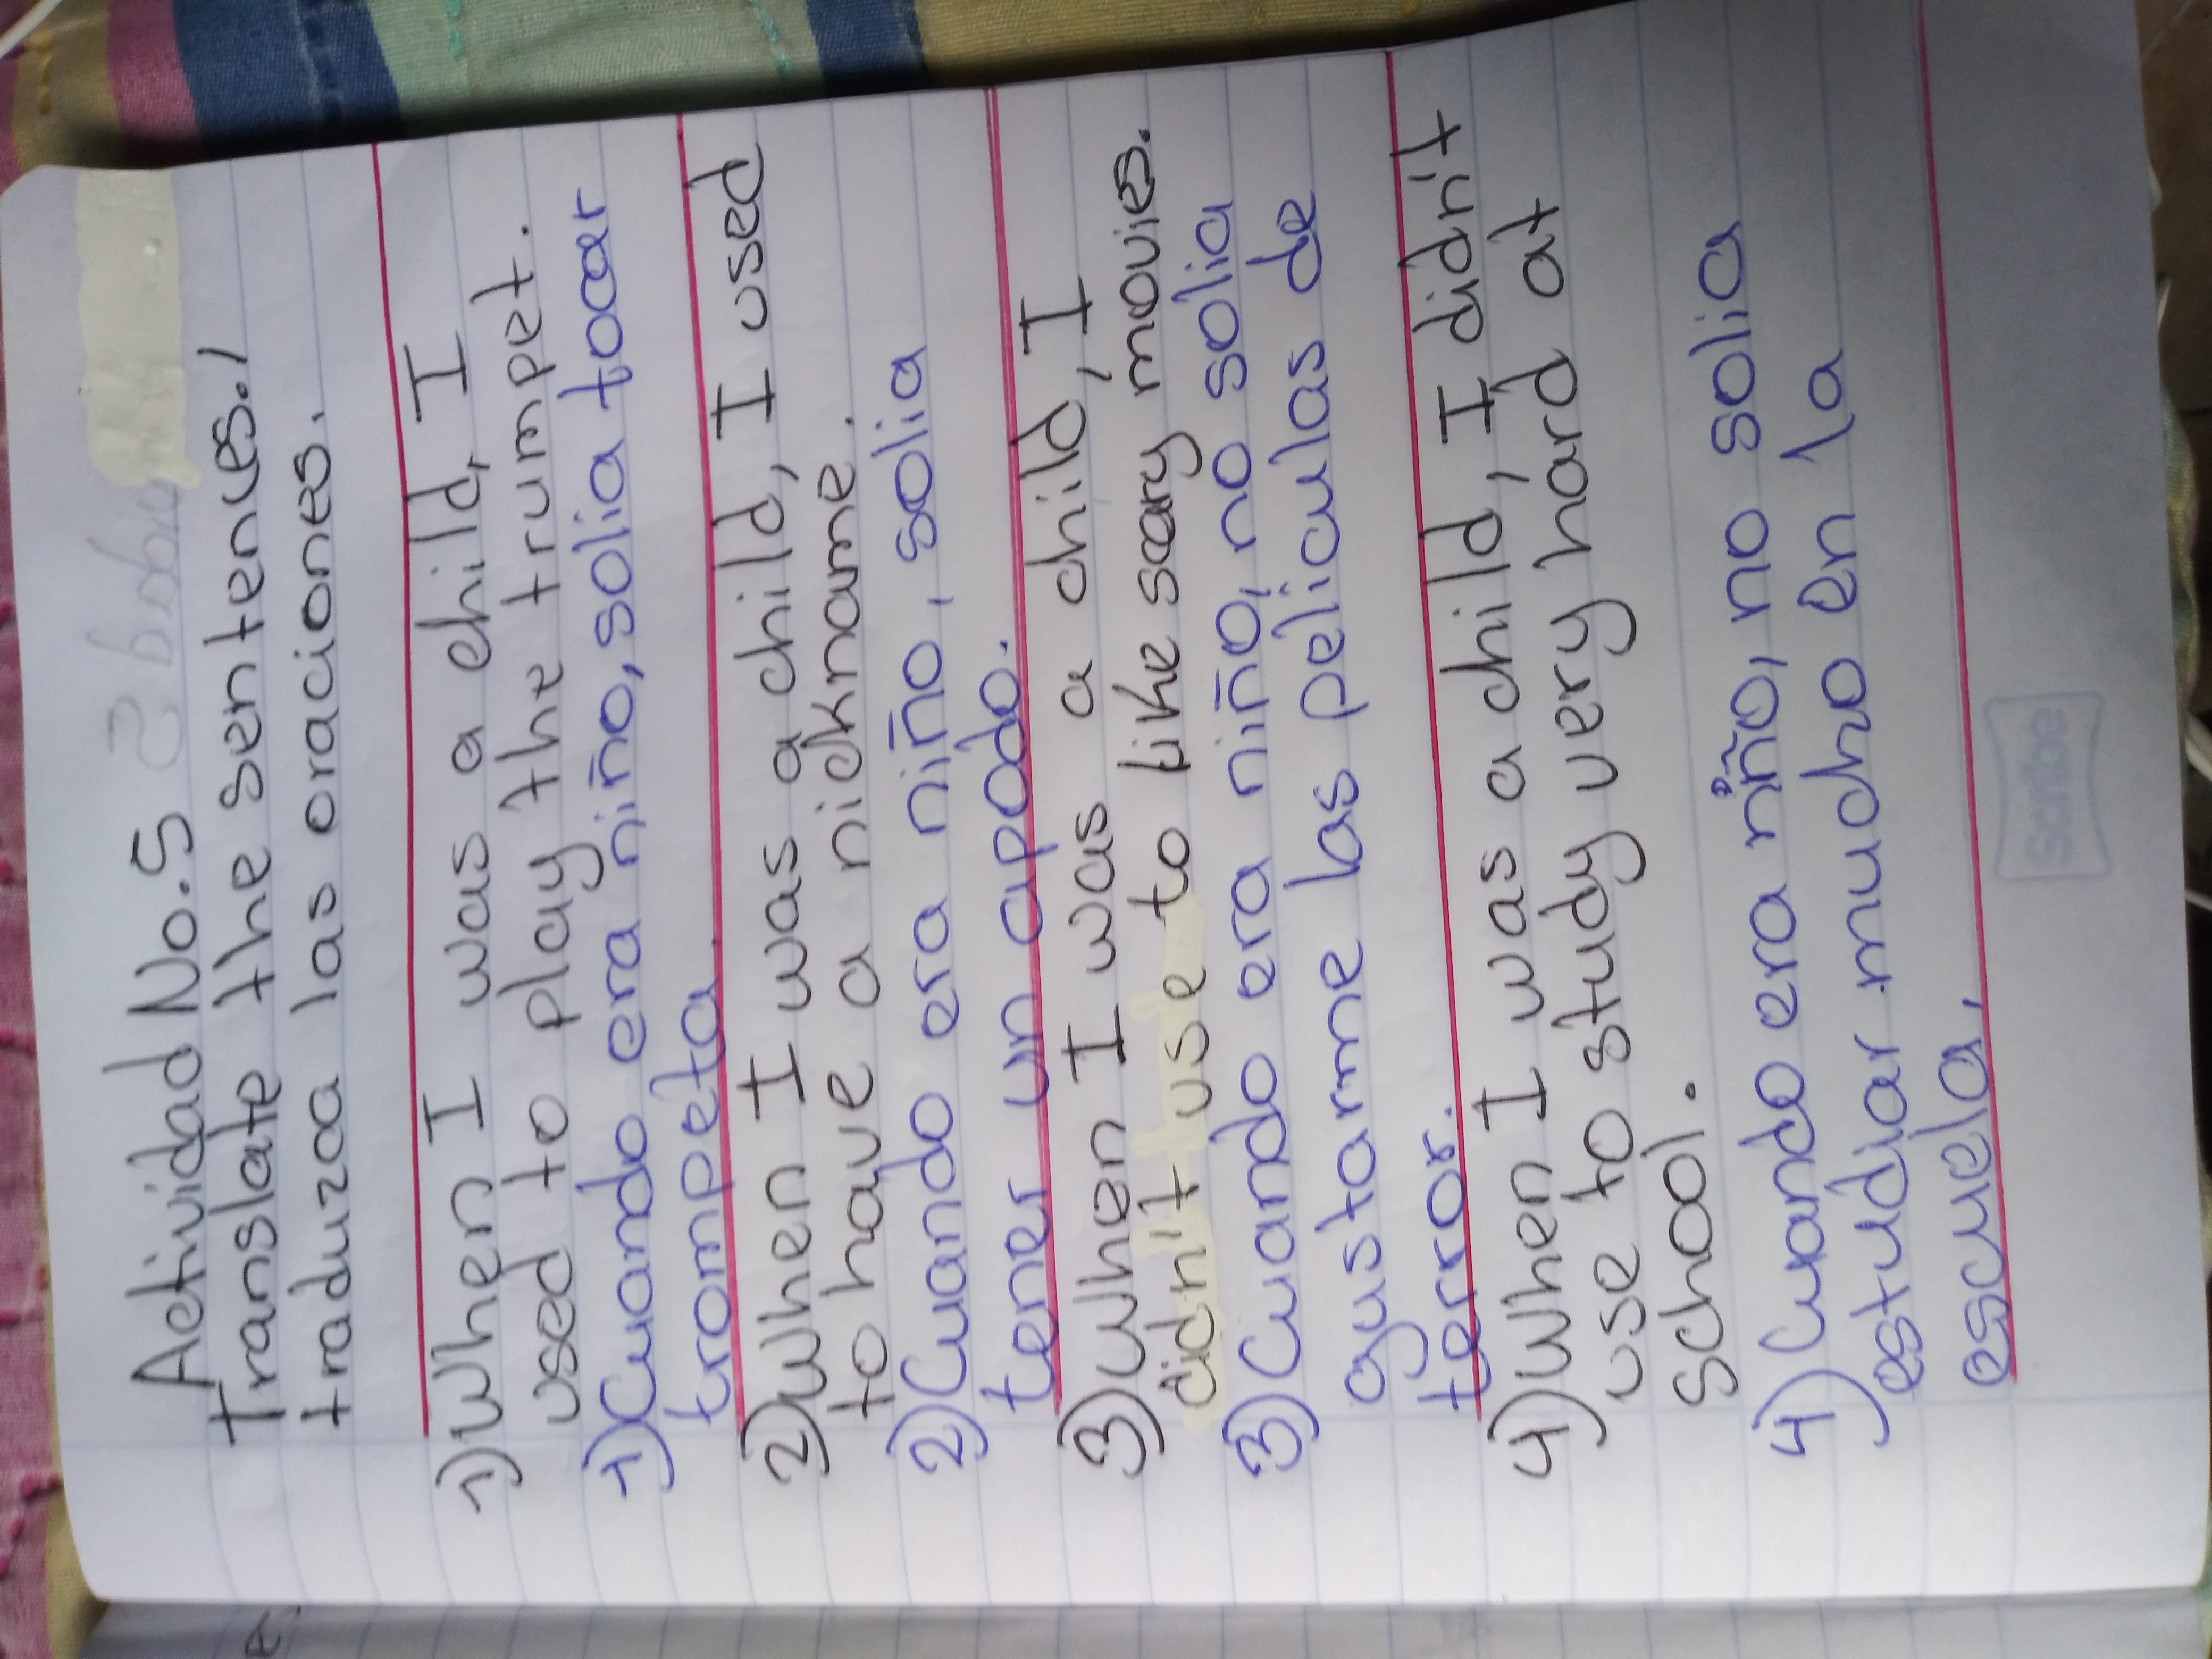 Actividad No.5
Translate the sentences./
traduzca las oraciones.
1) When I was a child, I
used to play the trumpet.
1) Cuando era niño, solia tocar
trompeta.
2) When I was a child, I used
to have a nickname.
2) Cuando era niño, solia
tener un apodo.
3) When I was a child, I
didn't use to like scary movies.
3) Cuando era niño, no solia
gustarme las peliculas de
terror.
4) When I was a child, I didn't
use to study very hard at
school.
4) Cuando era niño, no solia
estudiar mucho en la
escuela.
scribe